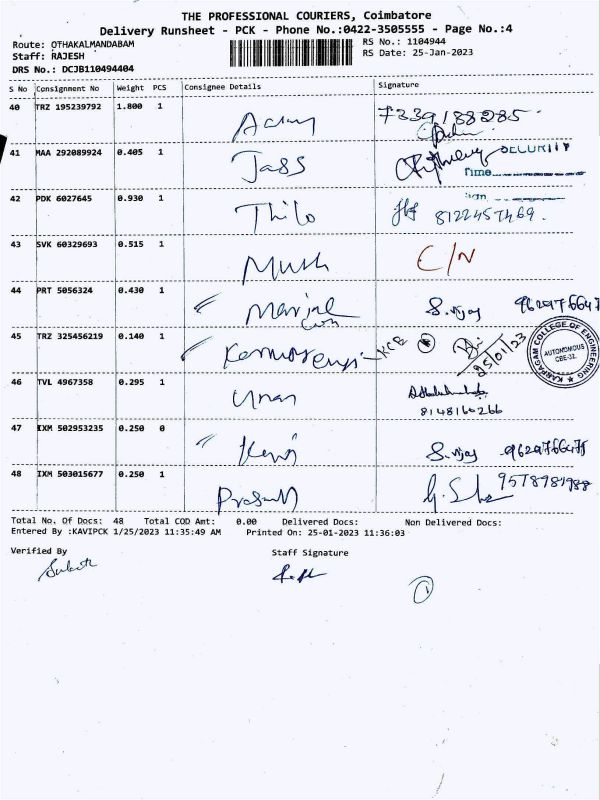 THE PROFESSIONAL COURIERS, Coimbatore
Delivery Runsheet - PCK - Phone No.:0422-3505555 - Page No.:4
Route: OTHAKALMANDABAM RS No.: 1104944
Staff: RAJESH RS Date: 25-Jan-2023
DRS No.: DCJB110494404
S No Consignment No Weight PCS Consignee Details Signature
40 TRZ 195239792 1.800 1 7339188285
41 MAA 292089924 0.405 1 Jass SECURITY
Time
42 PDK 6027645 0.930 1 Thilo 8122457469
43 SVK 60329693 0.515 1 C/N
44 PRT 5056324 0.430 1 S. Vijay
45 TRZ 325456219 0.140 1 KCE 25/01/23
KARPAGAM COLLEGE OF ENGINEERING AUTONOMOUS CBE-32.
46 TVL 4967358 0.295 1 8148160266
47 IXM 502953235 0.250 0 S. Vijay
48 IXM 503015677 0.250 1 9578981988
Total No. Of Docs: 48 Total COD Amt: 0.00 Delivered Docs: Non Delivered Docs:
Entered By :KAVIPCK 1/25/2023 11:35:49 AM Printed On: 25-01-2023 11:36:03
Verified By Staff Signature
1